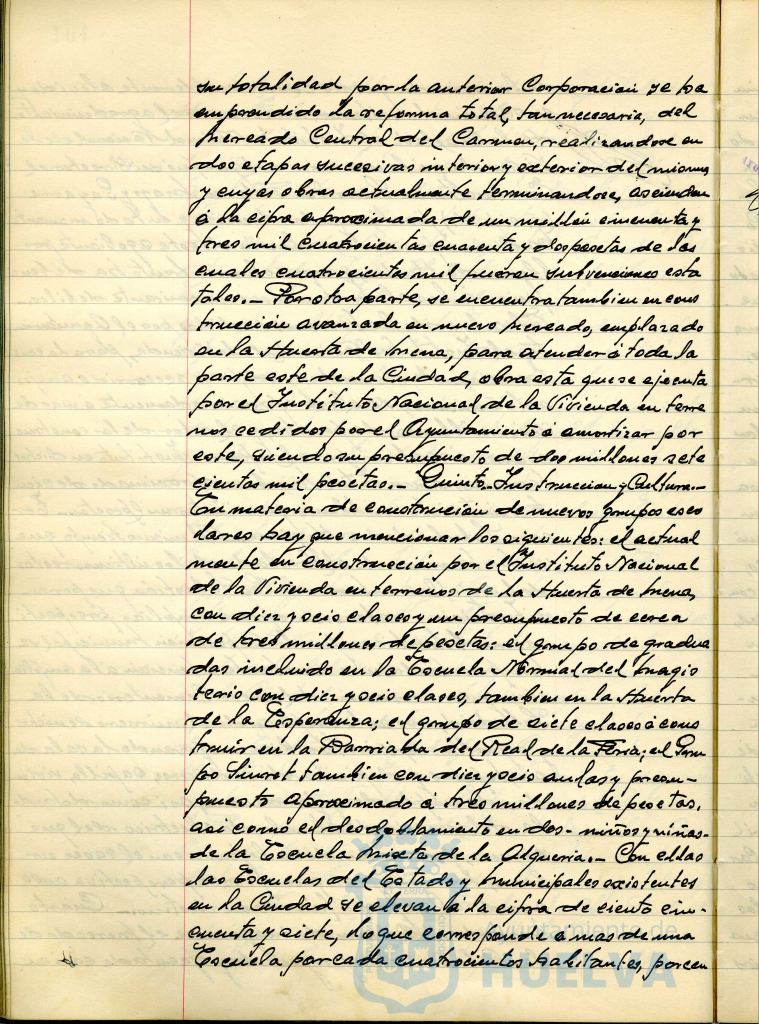 su totalidad por la anterior Corporación se ha
emprendido la reforma total, tan necesaria, del
Mercado Central del Carmen, realizandose en
dos etapas sucesivas interior y exterior del mismo
y cuyas obras actualmente terminandose, ascienden
á la cifra aproximada de un millón cincuenta y
tres mil cuatrocientas cuarenta y dos pesetas de las
cuales cuatrocientas mil fueron subvenciones esta
tales.- Por otra parte, se encuentra tambien en cons
trucción avanzada un nuevo Mercado, emplazado
en la Huerta de Mena, para atender á toda la
parte este de la Ciudad, obra esta que se ejecuta
por el Instituto Nacional de la Vivienda en terre
nos cedidos por el Ayuntamiento á amortizar por
este, siendo su presupuesto de dos millones sete
cientas mil pesetas.- Quinto.- Instruccion y Cultura.-
En materia de construcción de nuevos grupos esco
lares hay que mencionar los siguientes: el actual
mente en construcción por el Instituto Nacional
de la Vivienda en terrenos de la Huerta de Mena,
con diez y ocio clases y un presupuesto de cerca
de tres millones de pesetas; el grupo de gradua
das incluido en la Escuela Normal del Magis
terio con diez y ocio clases, tambien en la Huerta
de la Esperanza; el grupo de siete clases á cons
truir en la Barriada del Real de la Feria; el Gru
po Siurot tambien con diez y ocio aulas y presu-
puesto aproximado á tres millones de pesetas,
asi como el desdoblamiento en dos - niños y niñas -
de la Escuela Mixta de la Alqueria.- Con ellas
las Escuelas del Estado y Municipales existentes
en la Ciudad se elevan á la cifra de ciento cin-
cuenta y siete, lo que corresponde á mas de una
Escuela por cada cuatrocientos habitantes, porcen
Ayuntamiento de
HUELVA